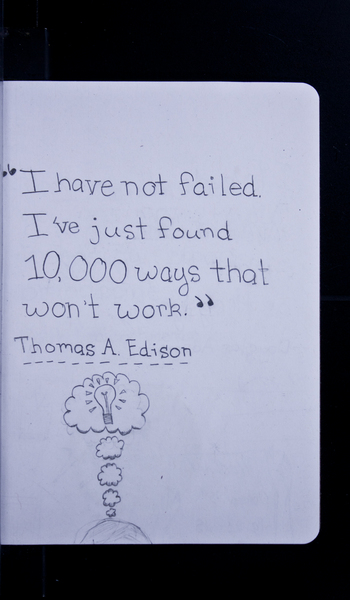 “I have not failed.
I've just found
10,000 ways that
won't work.”
Thomas A. Edison